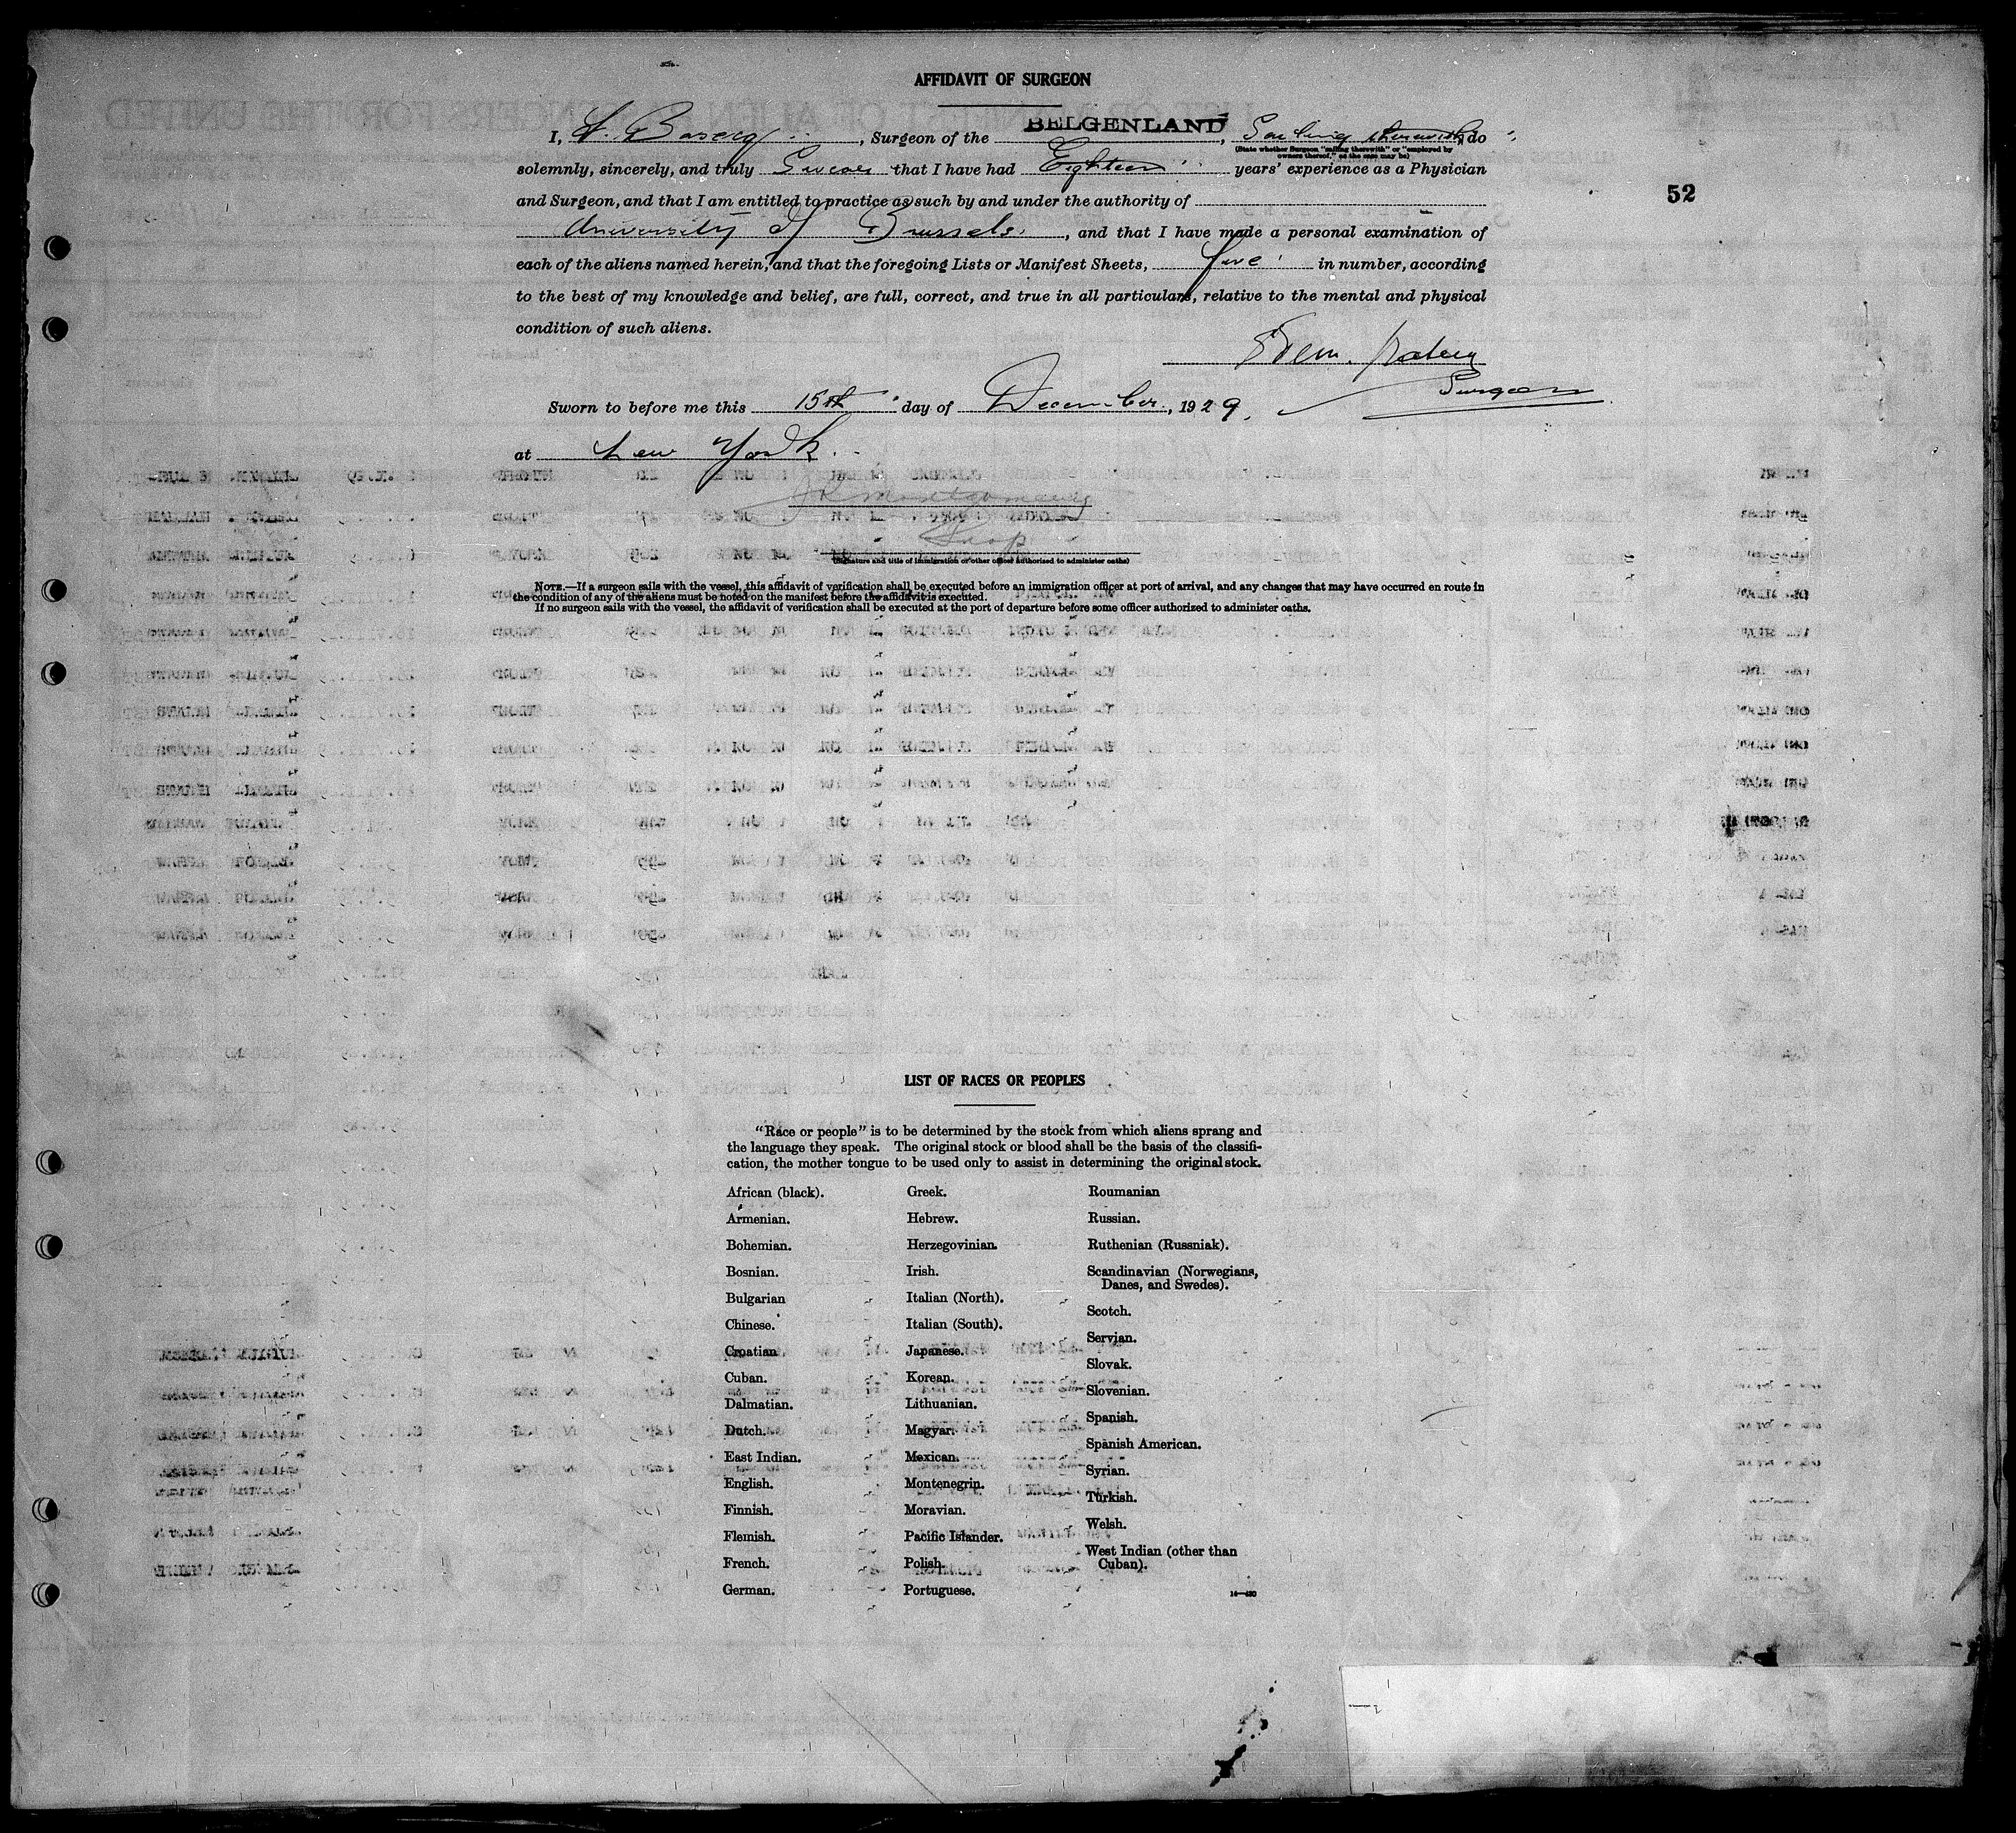 AFFIDAVIT OF SURGEON
I, , Surgeon of the BELGENLAND, Sailing therewith, do
(State whether Surgeon "sailing therewith" or "employed by
owners thereof," as the case may be)
solemnly, sincerely, and truly Swear that I have had Eighteen years' experience as a Physician
52
and Surgeon, and that I am entitled to practice as such by and under the authority of
University of Brussels, and that I have made a personal examination of
each of the aliens named herein, and that the foregoing Lists or Manifest Sheets, five in number, according
to the best of my knowledge and belief, are full, correct, and true in all particulars, relative to the mental and physical
condition of such aliens.
Surgeon
Sworn to before me this 15th day of December, 1929.
at New York.
Insp
(Signature and title of immigration or other officer authorized to administer oaths)
NOTE.—If a surgeon sails with the vessel, this affidavit of verification shall be executed before an immigration officer at port of arrival, and any changes that may have occurred en route in
the condition of any of the aliens must be noted on the manifest before the affidavit is executed.
If no surgeon sails with the vessel, the affidavit of verification shall be executed at the port of departure before some officer authorized to administer oaths.
LIST OF RACES OR PEOPLES
"Race or people" is to be determined by the stock from which aliens sprang and
the language they speak. The original stock or blood shall be the basis of the classifi-
cation, the mother tongue to be used only to assist in determining the original stock.
African (black).
Armenian.
Bohemian.
Bosnian.
Bulgarian
Chinese.
Croatian
Cuban.
Dalmatian.
Dutch.
East Indian.
English.
Finnish.
Flemish.
French.
German.
Greek.
Hebrew.
Herzegovinian.
Irish.
Italian (North).
Italian (South).
Japanese.
Korean.
Lithuanian.
Magyar.
Mexican.
Montenegrin.
Moravian.
Pacific Islander.
Polish.
Portuguese.
Roumanian
Russian.
Ruthenian (Russniak).
Scandinavian (Norwegians,
Danes, and Swedes).
Scotch.
Servian.
Slovak.
Slovenian.
Spanish.
Spanish American.
Syrian.
Turkish.
Welsh.
West Indian (other than
Cuban).